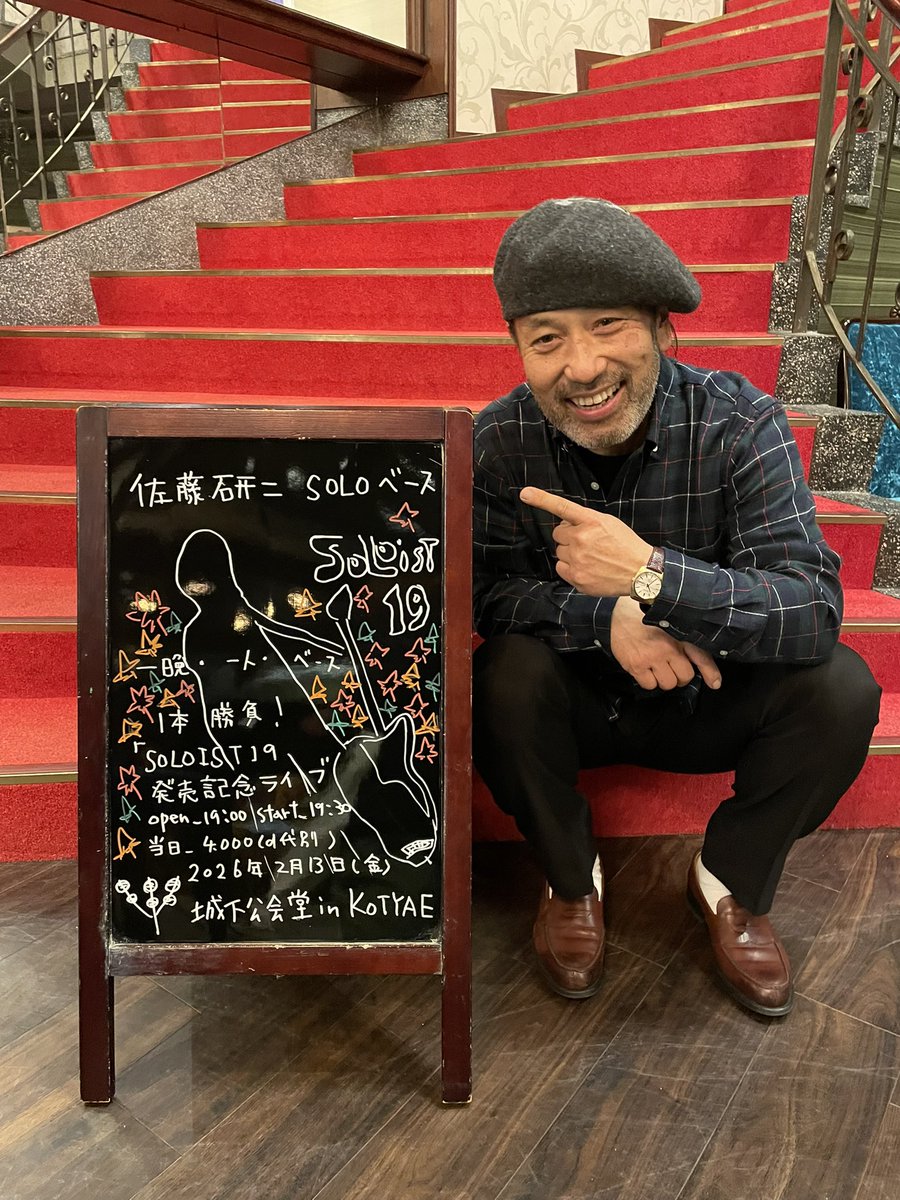 佐藤研二 SOLOベース
SOLOIST
19
一晩・一人・ベース
1本 勝負!
「SOLOIST19
発売記念ライブ
open_19:00/start_19:30
当日_4.000(d代別)
2026年2月13日(金)
城下公会堂 in KOTYAE